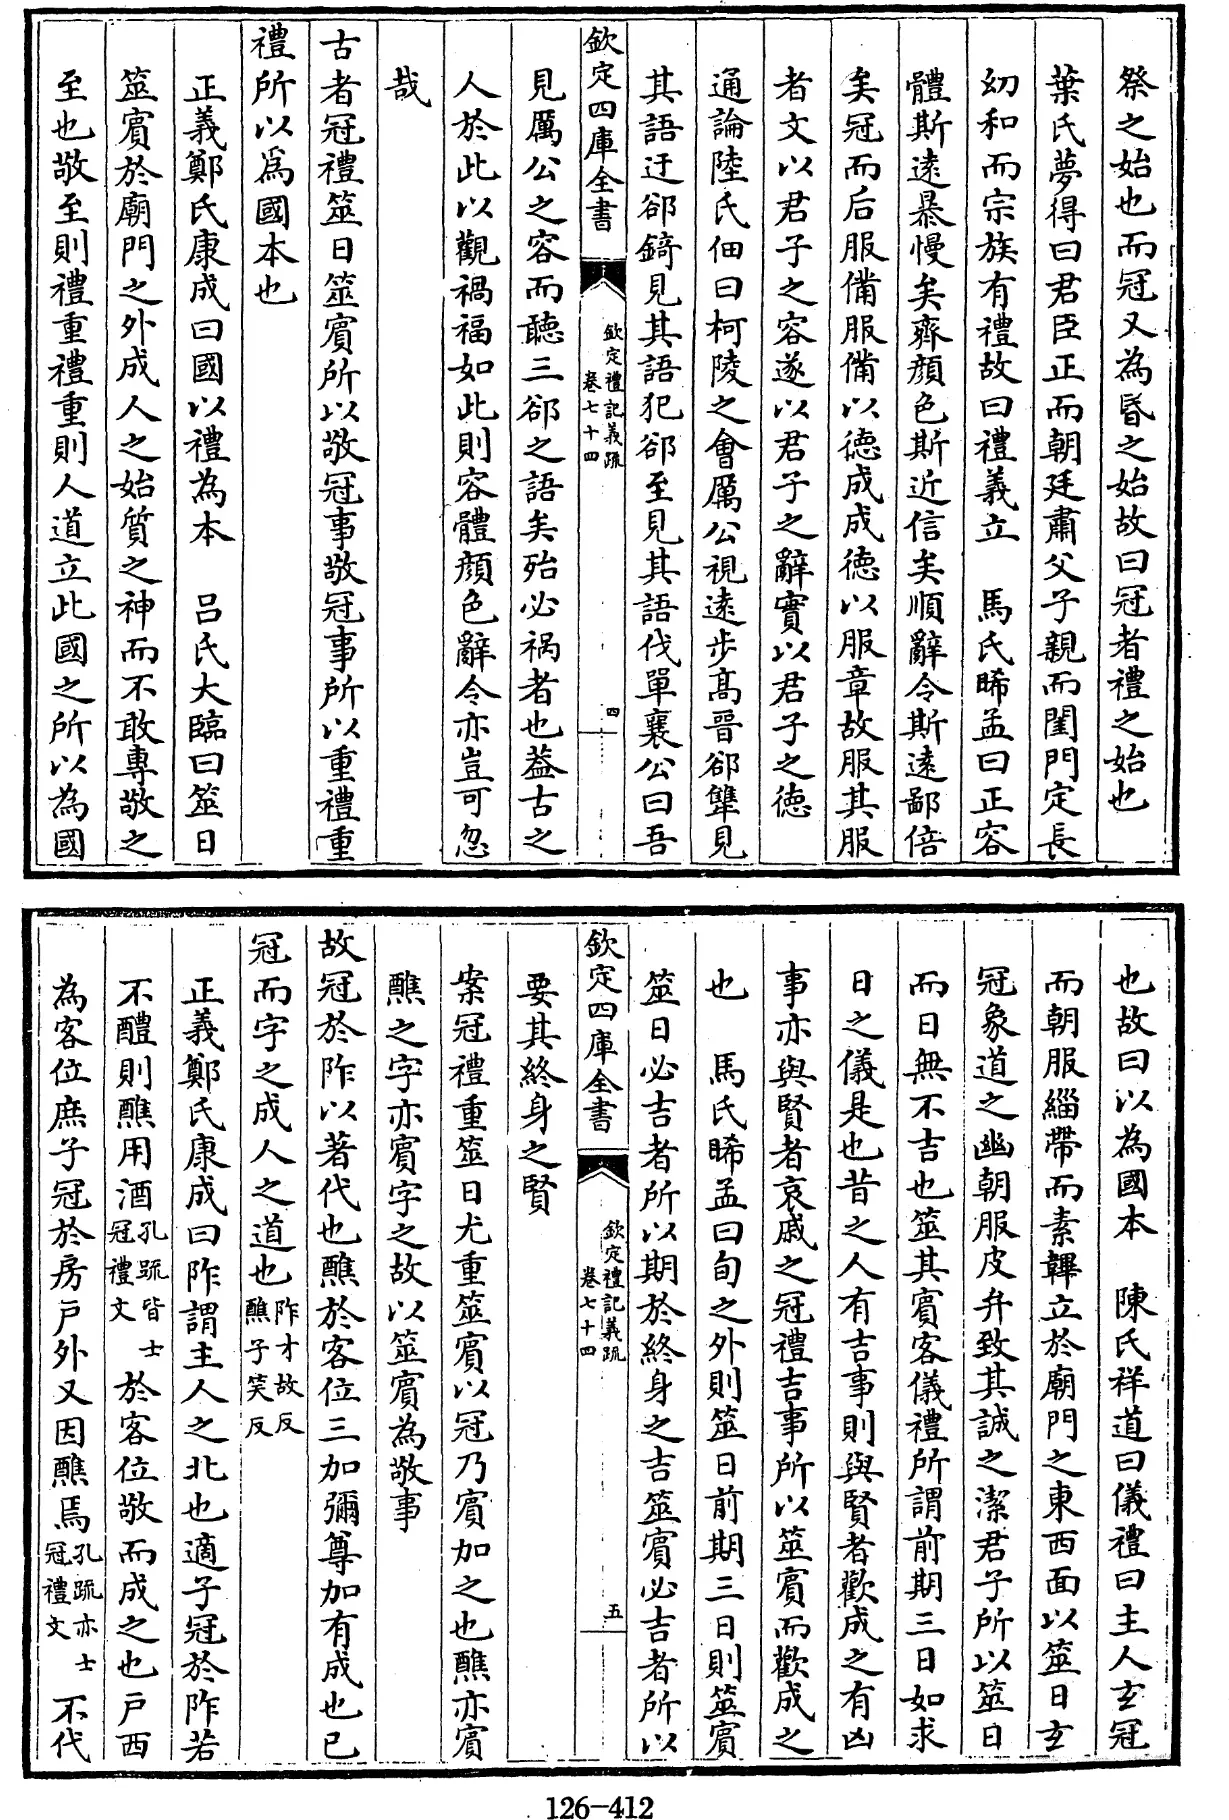 祭之始也而冠又為昏之始故曰冠者禮之始也
葉氏夢得曰君臣正而朝廷肅父子親而閨門定長
幼和而宗族有禮故曰禮義立　馬氏睎孟曰正容
體斯遠暴慢矣齊顔色斯近信矣順辭令斯遠鄙倍
矣冠而后服備服備以德成成德以服章故服其服
者文以君子之容遂以君子之辭實以君子之德
通論陸氏佃曰柯陵之會厲公視遠步髙晉郤犨見
其語迂郤錡見其語犯郤至見其語伐單襄公曰吾
欽定四庫全書
欽定禮記義疏
卷七十四
四
見厲公之容而聽三郤之語矣殆必禍者也蓋古之
人於此以觀禍福如此則容體顔色辭令亦豈可忽
哉
古者冠禮筮日筮賓所以敬冠事敬冠事所以重禮重
禮所以爲國本也
正義鄭氏康成曰國以禮為本　呂氏大臨曰筮日
筮賓於廟門之外成人之始質之神而不敢專敬之
至也敬至則禮重禮重則人道立此國之所以為國
也故曰以為國本　陳氏祥道曰儀禮曰主人玄冠
而朝服緇帶而素韠立於廟門之東西面以筮日玄
冠象道之幽朝服皮弁致其誠之潔君子所以筮日
而日無不吉也筮其賓客儀禮所謂前期三日如求
日之儀是也昔之人有吉事則與賢者歡成之有凶
事亦與賢者哀戚之冠禮吉事所以筮賓而歡成之
也　馬氏睎孟曰旬之外則筮日前期三日則筮賓
筮日必吉者所以期於終身之吉筮賓必吉者所以
欽定四庫全書
欽定禮記義疏
卷七十四
五
要其終身之賢
案冠禮重筮日尤重筮賓以冠乃賓加之也醮亦賓
醮之字亦賓字之故以筮賓為敬事
故冠於阼以著代也醮於客位三加彌尊加有成也已
冠而字之成人之道也阼才故反醮子笑反
正義鄭氏康成曰阼謂主人之北也適子冠於阼若
不醴則醮用酒孔疏皆士冠禮文於客位敬而成之也戸西
為客位庶子冠於房戸外又因醮焉孔疏亦士冠禮文不代
126-412